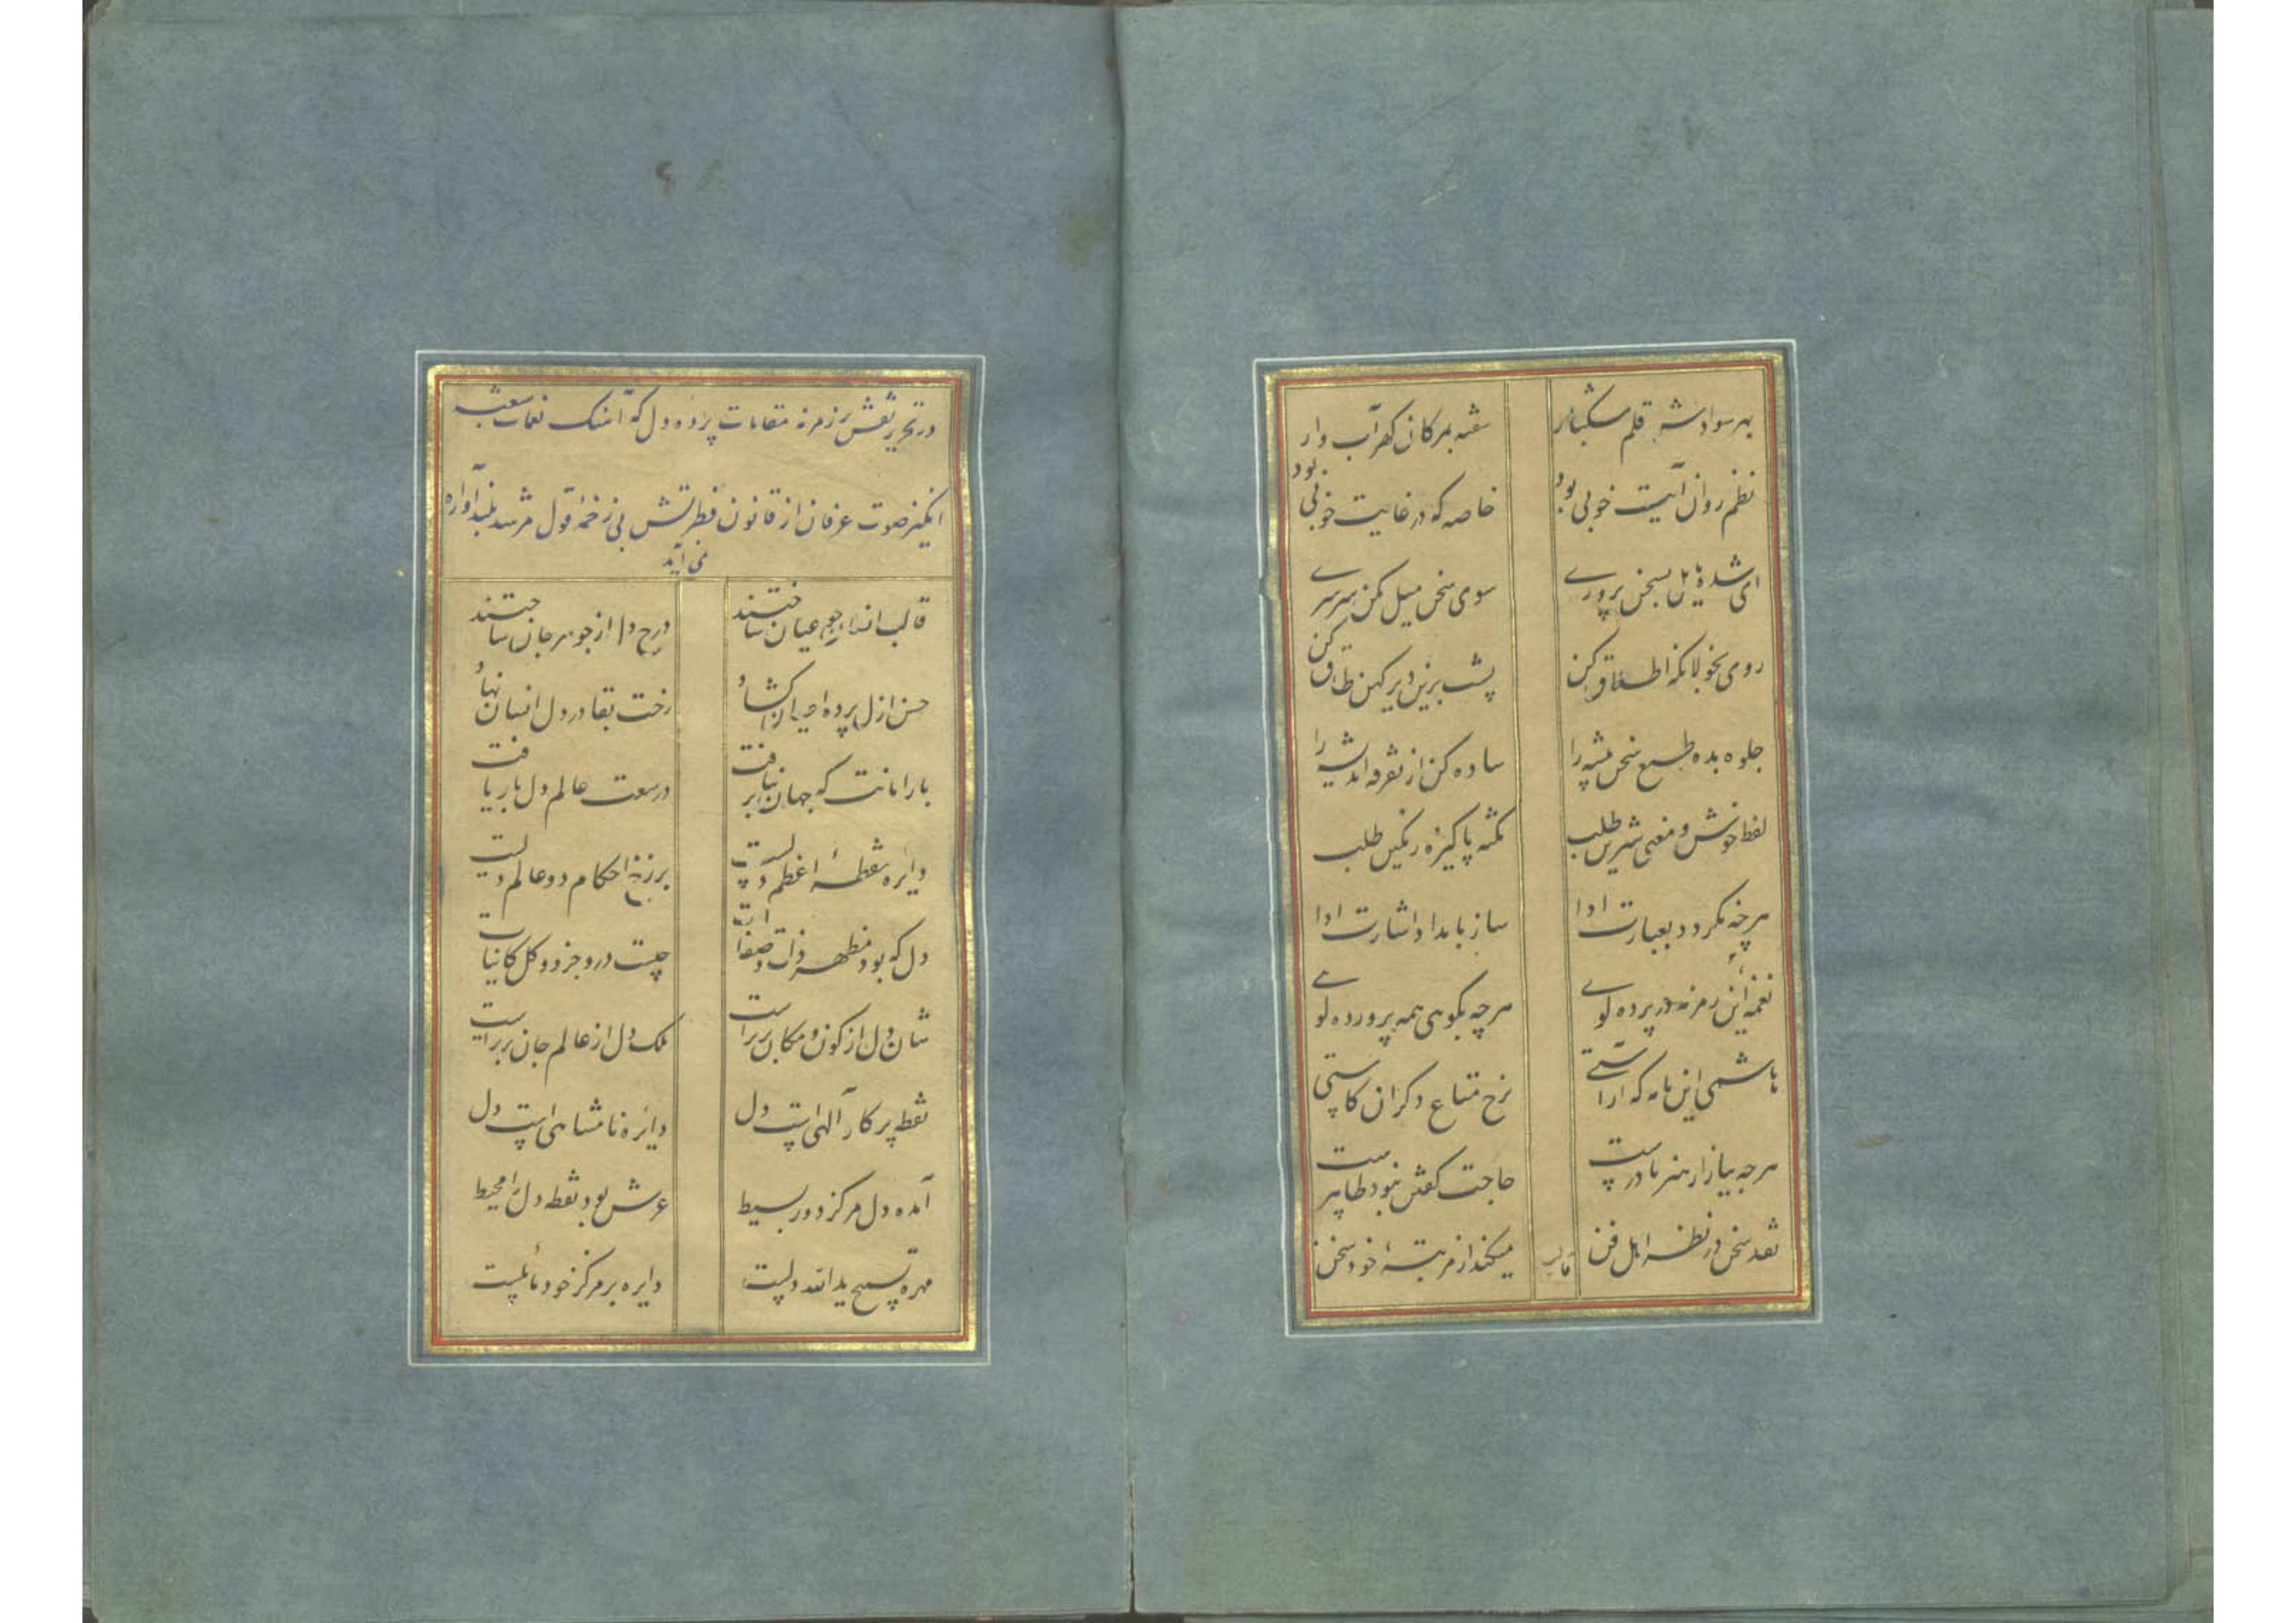 بهر سوادش قلم مشکبار
سفته بمژگان گهر آب دار
نظم روان آیت خوبی بود
خاصه که در غایت خوبی بود
ای شده مایل بسخن پروری
سوی سخن میل مکن سرسری
روی بخولانکه اطلاق کن
پشت برین دیر کهن طاق کن
جلوه بده طبع سخن پیشه را
ساده کن از تفرقه اندیشه را
لفظ خوش و معنی شیرین طلب
نکته پاکیزه رنگین طلب
هرچه نکردد بعبارت ادا
ساز بامداد اشارت ادا
نغمه این زمزمه در پرده گوی
هرچه بگوهی همه پرورده گوی
هاشمی این نامه که آراستی
نرخ متاع دکران کاستی
هرچه ببازار هنر نادرست
حاجت گفتن نبود ظاهرست
نقد سخن در نظر اهل فن
میکند از مرتبهٔ خود سخن
قالب
در تحریر نقش زمزمه مقامات پرده دل که آهنگ نغمات شعبه
انگیز صوت عرفان از قانون فطرتش بی زخمهٔ قول مرشد بلندآوازه
می آید
قالب انسان چو عیان ساختند
درج دل از جوهر جان ساختند
حسن ازل پرده احسان گشاد
رخت بقا در دل انسان نهاد
بار امانت که جهان بر نتافت
در سعت عالم دل بار یافت
دایره نقطهٔ اعظم دلست
برزخ احکام دو عالم دلست
دل که بود مظهر ذات و صفات
چیست درو جزو و کل کاینات
شان دل از کون و مکان برترست
ملک دل از عالم جان برترست
نقطه پرکار آلهی است دل
دایره نامتناهی است دل
آمده دل مرکز دور بسیط
عرش بود نقطه دل را محیط
مهره تسبیح یدالله دلست
دایره بر مرکز خود مایلست